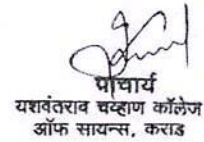 प्राचार्य
यशवंतराव चव्हाण कॉलेज
ऑफ सायन्स, कराड